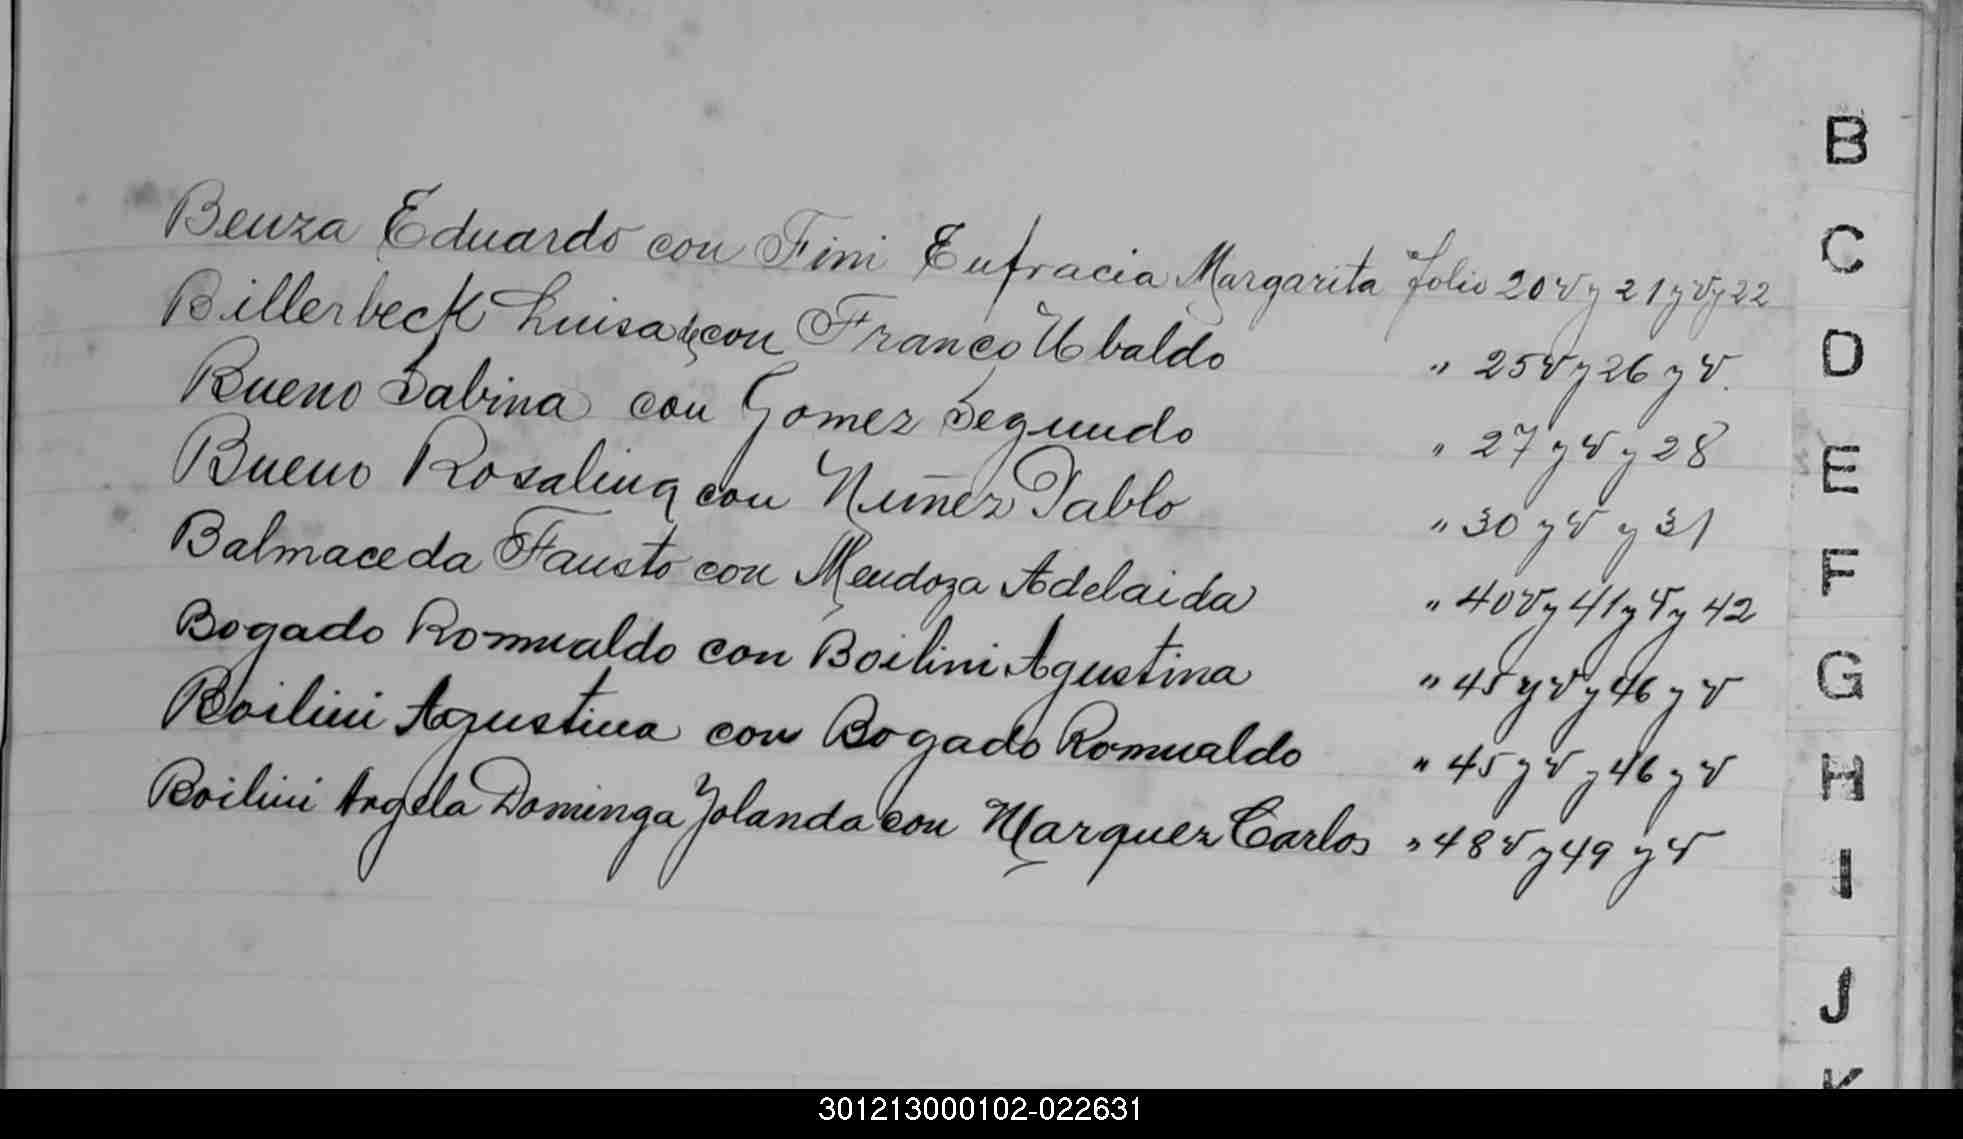 Beuza Eduardo con Fini Eufracia Margarita folio 20 v y 21 y v y 22
Billerbeck Luisa con Franco Ubaldo " 25 v y 26 y v.
Bueno Sabina con Gomez Segundo " 27 y v y 28
Bueno Rosalina con Nuñez Pablo " 30 y v y 31
Balmaceda Fausto con Mendoza Adelaida " 40 v y 41 y v y 42
Bogado Romualdo con Boilini Agustina " 45 y v y 46 y v
Boilini Agustina con Bogado Romualdo " 45 y v y 46 y v
Boilini Angela Dominga Yolanda con Marquez Carlos " 48 v y 49 y v
B
C
D
E
F
G
H
I
J
K
301213000102-022631